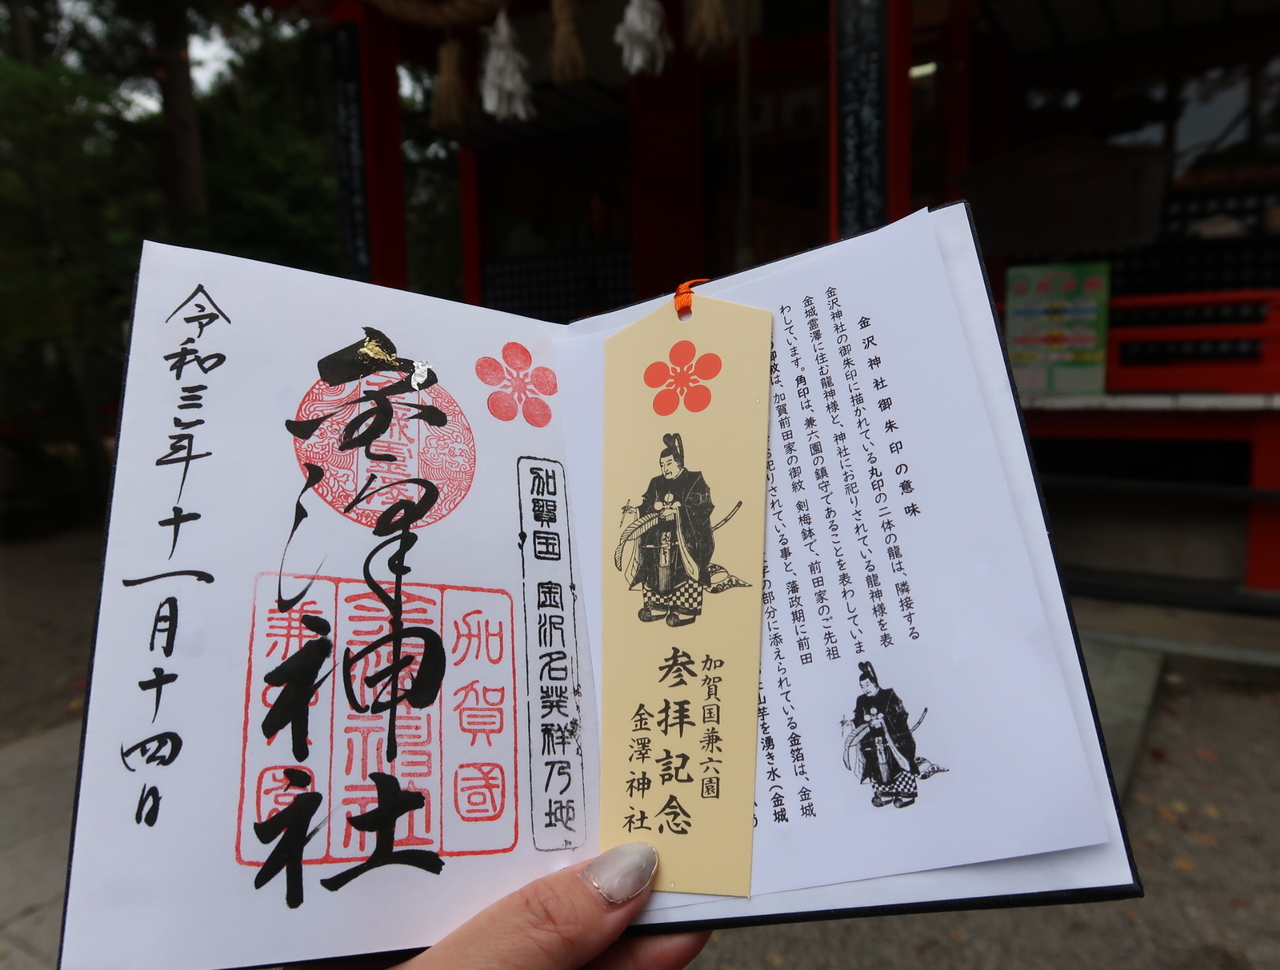 金沢神社御朱印の意味
金沢神社の御朱印に描かれている丸印の二体の龍は、隣接する
金城霊澤に住む龍神様と、神社にお祀りされている龍神様を表
わしています。角印は、兼六園の鎮守であることを表わしていま
御紋は、加賀前田家の御紋 剣梅鉢で、前田家のご先祖
祀りされている事と、藩政期に前田
字の部分に添えられている金箔は、金城
山芋を湧き水(金城
加賀国兼六園
参拝記念
金澤神社
加賀国 金沢名発祥乃地
加賀國
金澤神社
兼六園
金澤神社
令和三年十一月十四日